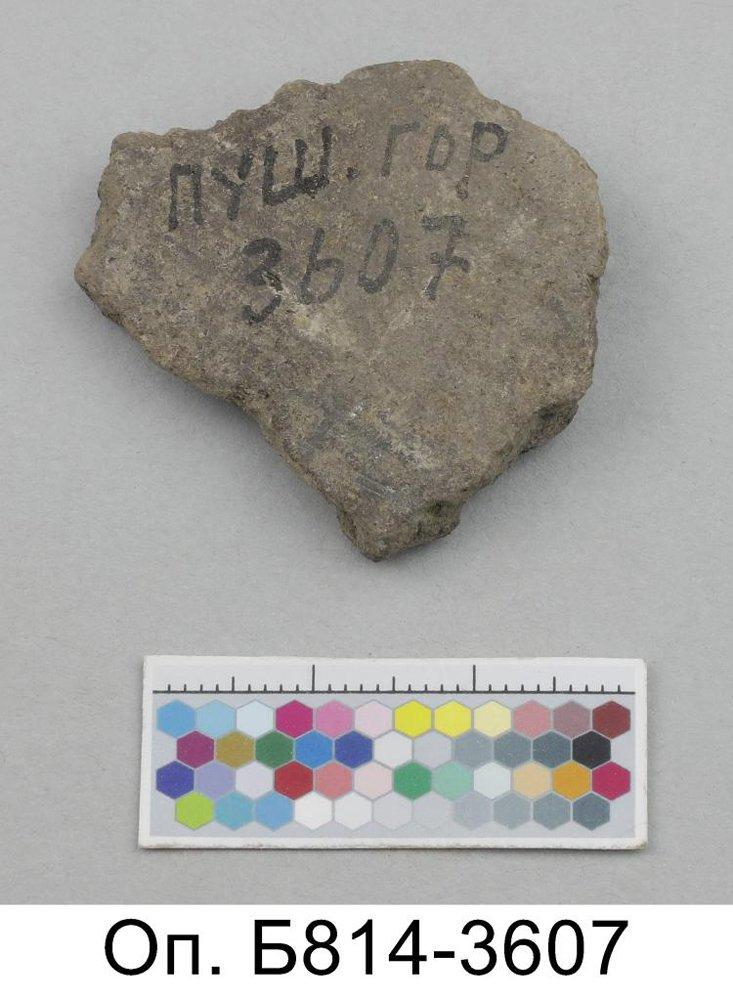 ПУШ. ГОР
3607
Оп. Б814-3607